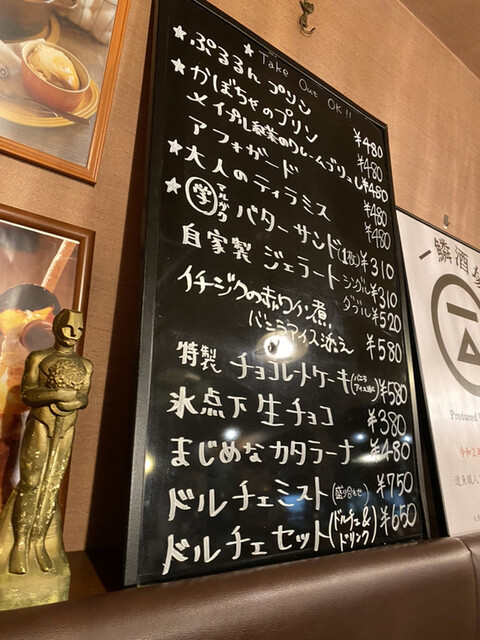 ★ Take Out OK!!
★ ぷるるんプリン ¥480
★ かぼちゃのプリン ¥480
メイプル和栗のクレームブリュレ ¥480
アフォガード ¥480
★ 大人のティラミス ¥480
★ 学 マルガク バターサンド(1枚) ¥310
自家製 ジェラート シングル ¥310
ダブル ¥520
イチジクの赤ワイン煮
バニラアイス添え ¥580
特製 チョコレートケーキ(バニラアイス添え) ¥580
氷点下生チョコ ¥380
まじめなカタラーナ ¥480
ドルチェミスト(盛り合わせ) ¥750
ドルチェセット(ドルチェ&ドリンク) ¥650
鱗酒
Produced
令和2年